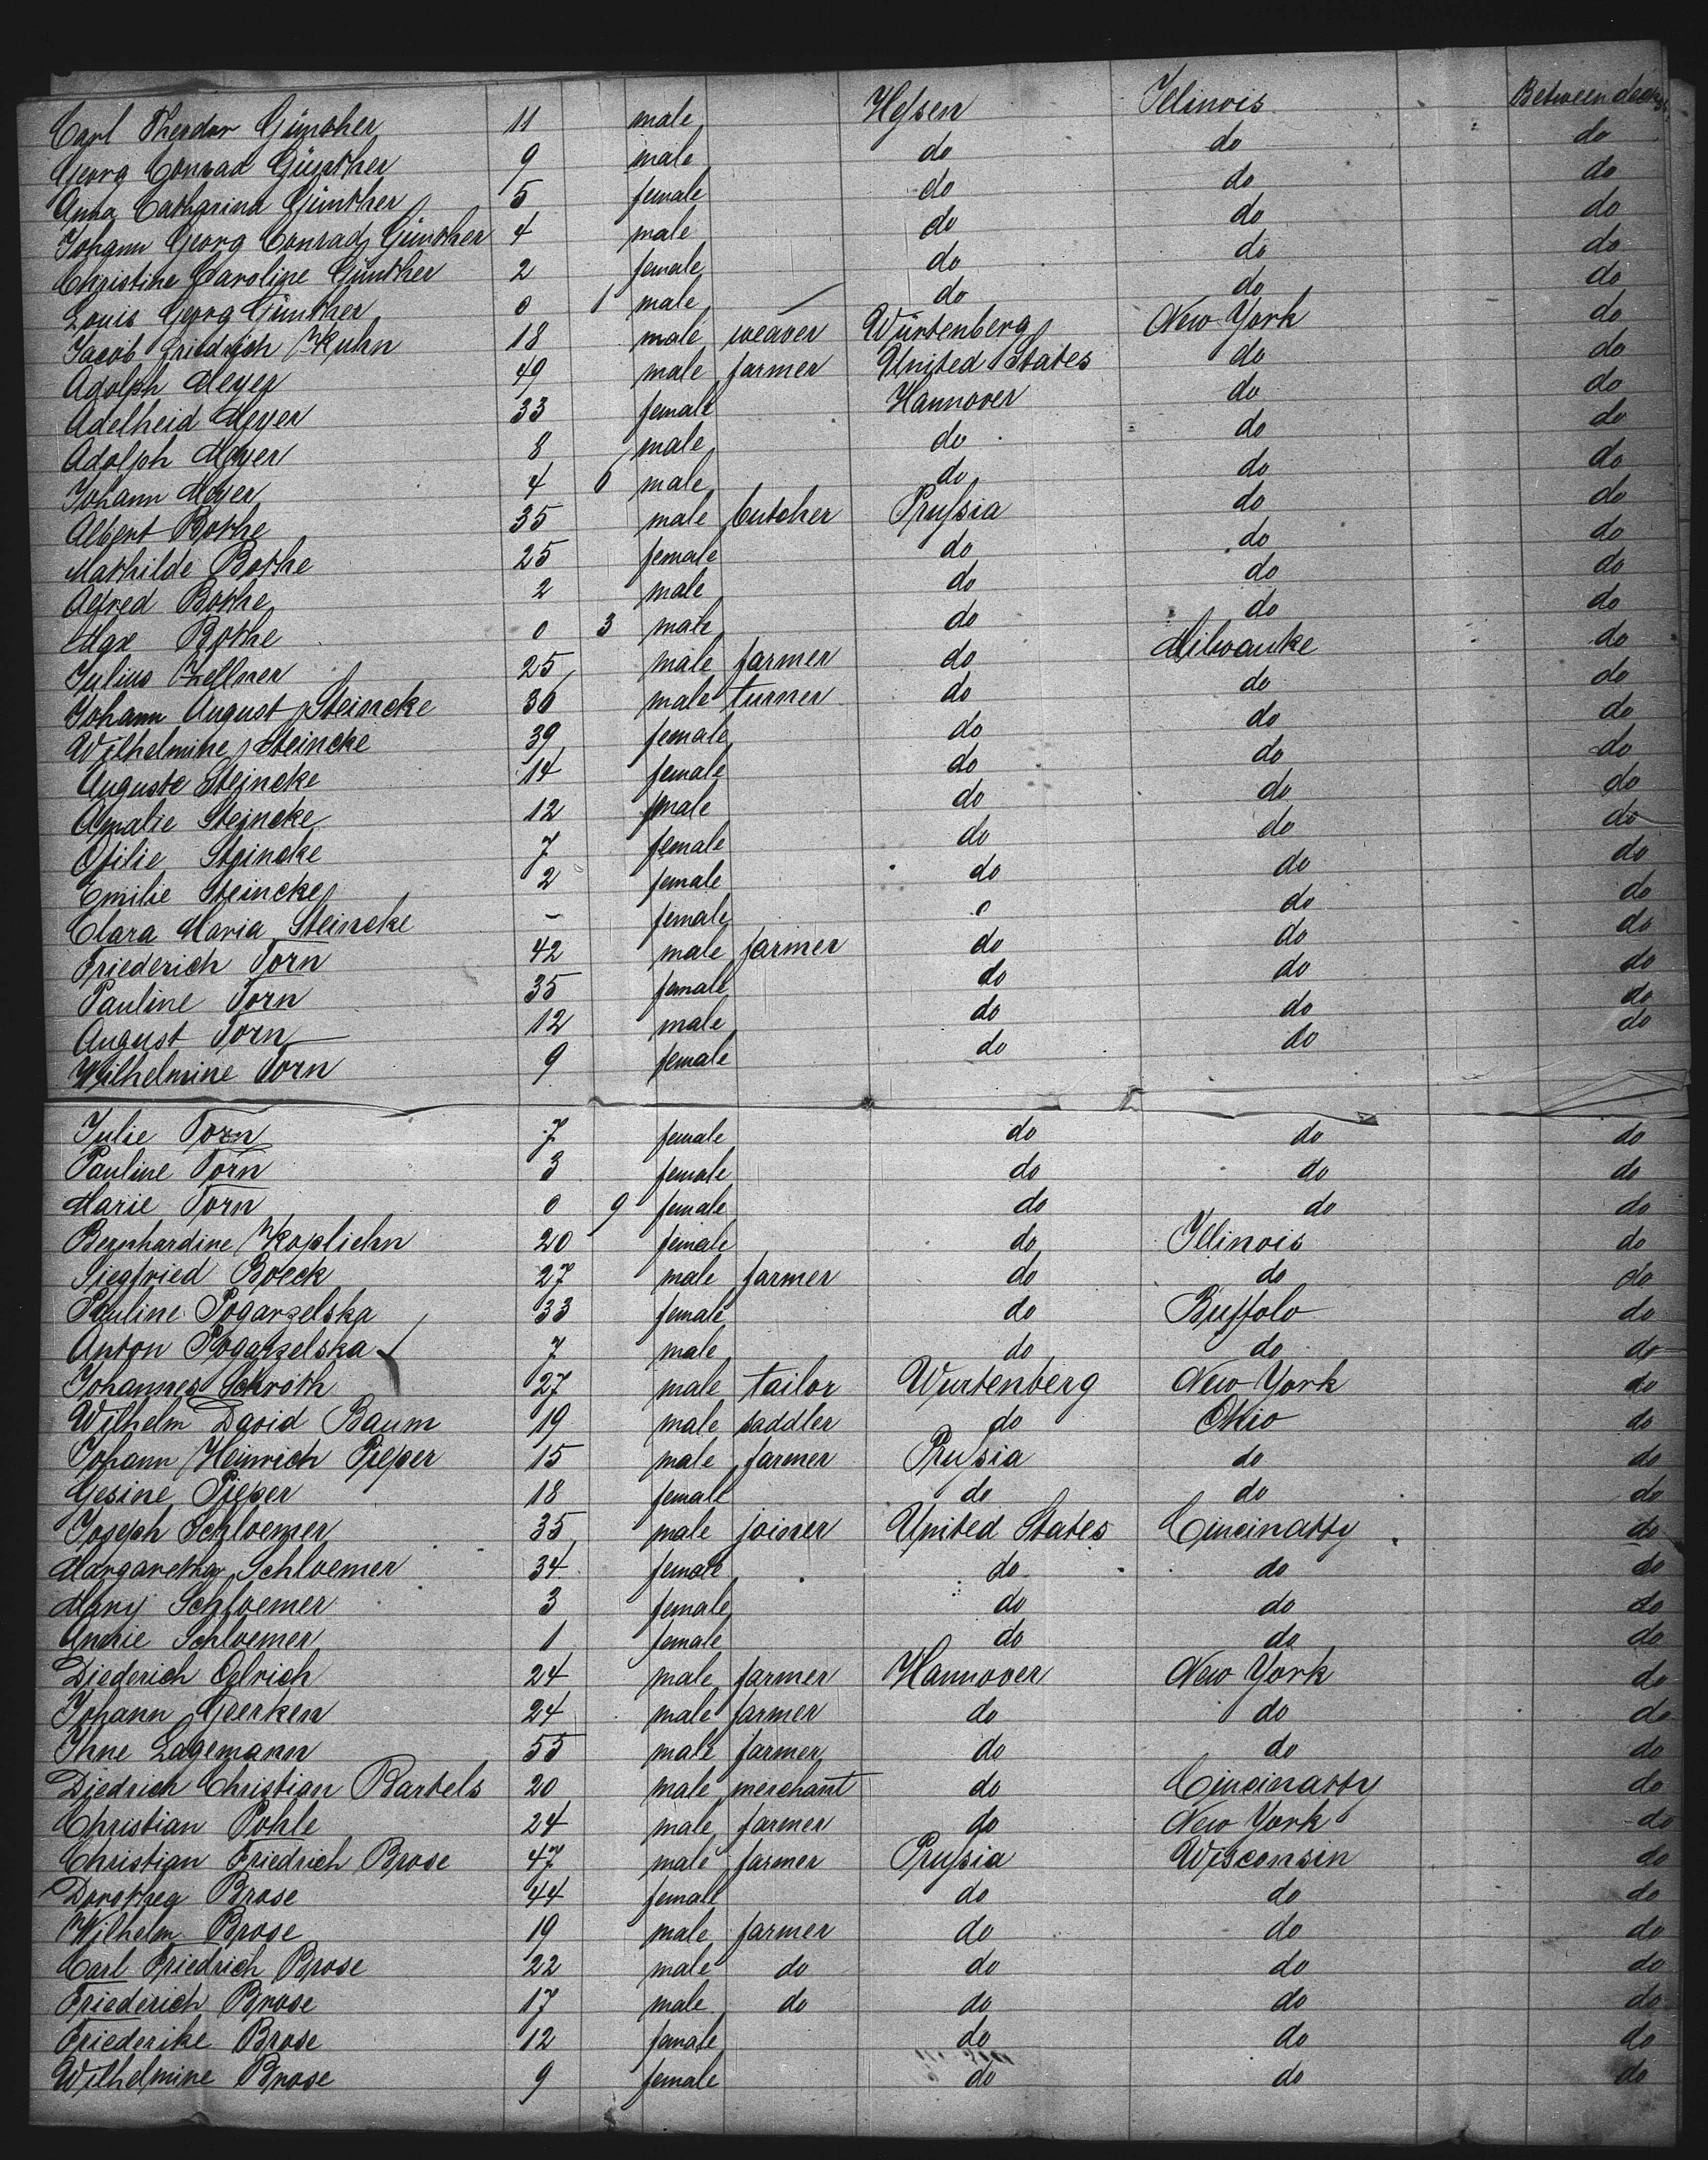 Carl Theodor Günther 11 male Hessen Illinois Between decks
Georg Conrad Günther 9 male do do do
Anna Catharina Günther 5 female do do do
Johann Georg Conrad Günther 4 male do do do
Christine Caroline Günther 2 female do do do
Louis Georg Günther 0 1 male do do do
Jacob Friedrich Kuhn 18 male weaver Würtenberg New York do
Adolph Meyer 49 male farmer United States do do
Adelheid Meyer 33 female Hannover do do
Adolph Meyer 8 male do do do
Johann Meyer 4 6 male do do do
Albert Bothe 35 male butcher Prussia do do
Mathilde Bothe 25 female do do do
Alfred Bothe 2 male do do do
Max Bothe 0 3 male do do do
Julius Zellner 25 male farmer do Milwauke do
Johann August Steincke 36 male turner do do do
Wilhelmine Steincke 39 female do do do
Auguste Steincke 14 female do do do
Amalie Steincke 12 female do do do
Otilie Steincke 7 female do do do
Emilie Steincke 2 female do do do
Clara Maria Steincke - female do do
Friederich Torn 42 male farmer do do do
Pauline Torn 35 female do do do
August Torn 12 male do do do
Wilhelmine Torn 9 female do do do
Julie Torn 7 female do do do
Pauline Torn 3 female do do do
Marie Torn 0 9 female do do do
Bernhardine Koplichn 20 female do Illinois do
Siegfried Boeck 27 male farmer do do do
Pauline Pogarzelska 33 female do Buffolo do
Anton Pogarzelska 7 male do do do
Johannes Schröth 27 male tailor Wurtenberg New York do
Wilhelm David Baum 19 male saddler do Ohio do
Johann Heinrich Pieper 15 male farmer Prussia do do
Gesine Pieper 18 female do do do
Joseph Schloemer 35 male joiner United States Cincinatty do
Margaretha Schloemer 34 female do do do
Mary Schloemer 3 female do do do
Annie Schloemer 1 female do do do
Diederich Oelrich 24 male farmer Hannover New York do
Johann Geerken 24 male farmer do do do
Ihne Lagemann 55 male farmer do do do
Diedrich Christian Bartels 20 male merchant do Cincinatty do
Christian Pohle 24 male farmer do New York do
Christian Friedrich Brose 47 male farmer Prussia Wisconsin do
Dorothea Brose 44 female do do do
Wilhelm Brose 19 male farmer do do do
Carl Friedrich Brose 22 male do do do do
Friederich Brose 17 male do do do do
Friederike Brose 12 female do do do
Wilhelmine Brose 9 female do do do